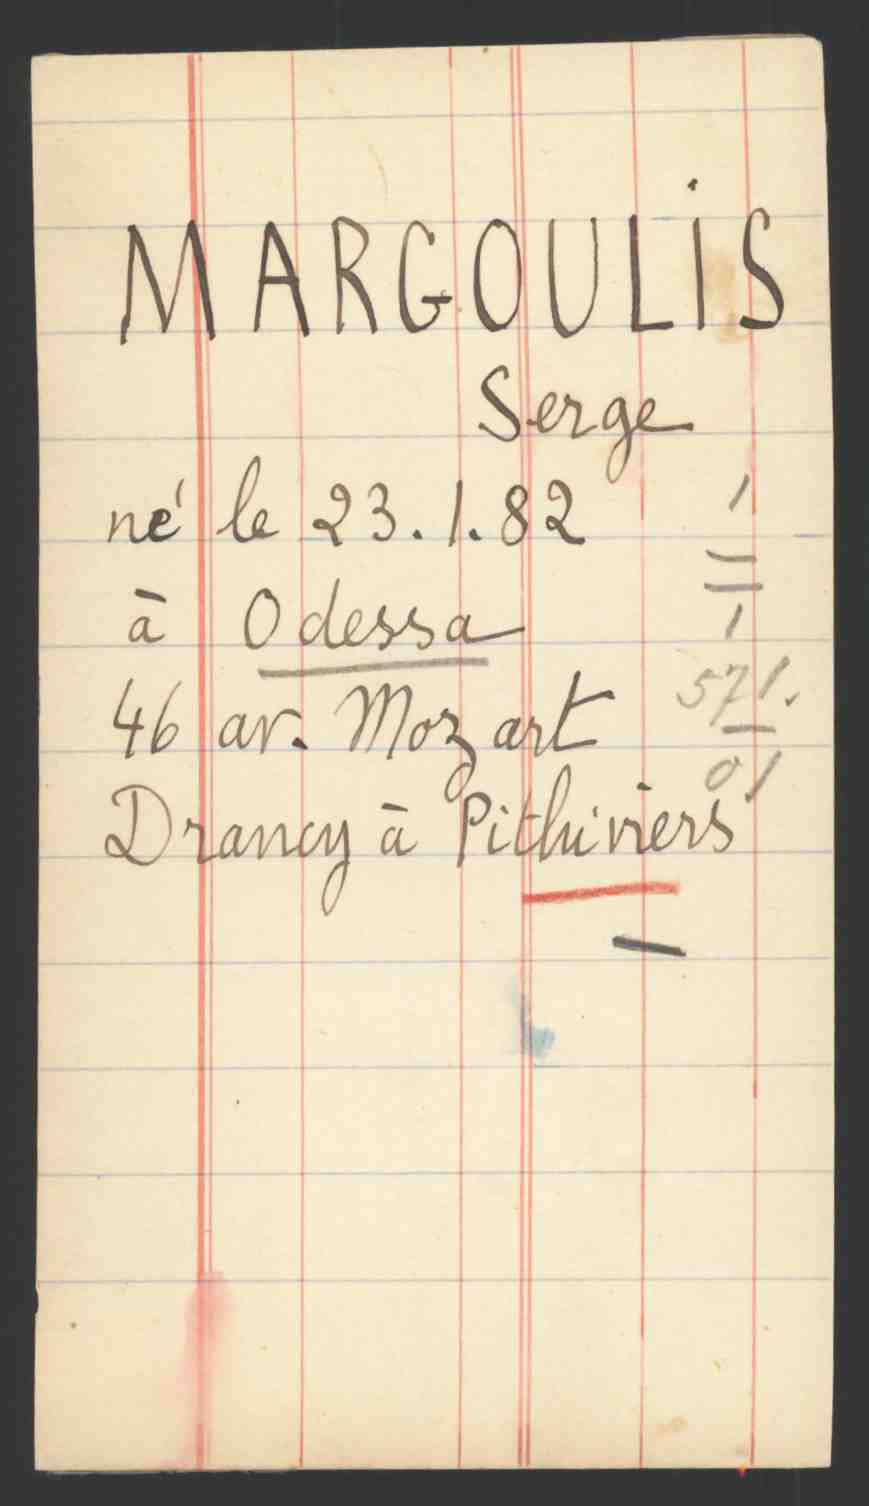 MARGOULIS
Serge
né le 23.1.82
à Odessa
46 av. Mozart
571.
01
Drancy à Pithiviers